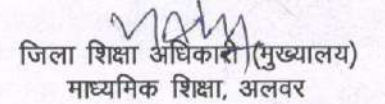 जिला शिक्षा अधिकारी (मुख्यालय)
माध्यमिक शिक्षा, अलवर